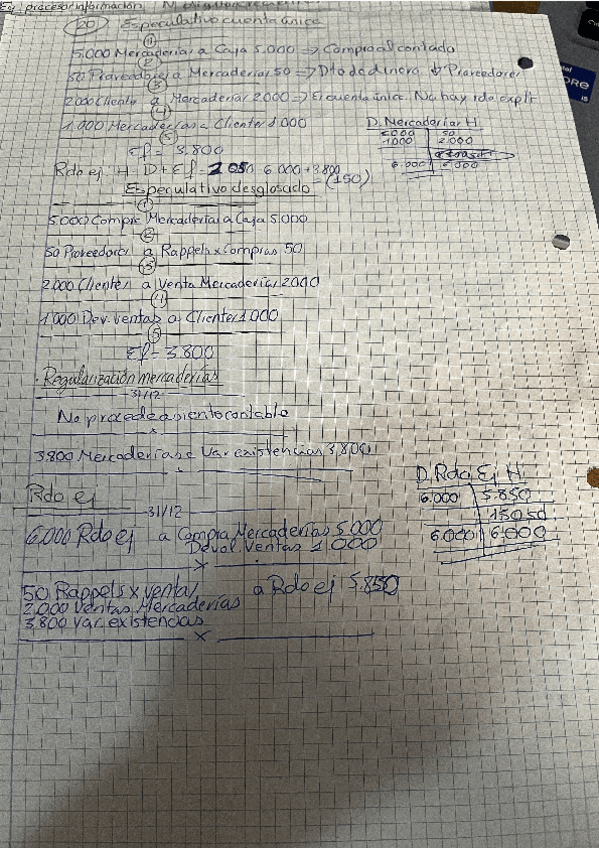 Ej procesor información,
20 Especulativo cuenta única
1
5.000 Mercaderías a Caja 5.000 => Compra al contado
2
50 Proveedores a Mercaderías 50 => Dto de dinero ↓ Proveedores
3
2000 Clientes a Mercaderías 2000 => Es cuenta única. No hay rdo explit
4
1.000 Mercaderías a Clientes 1000
5
Ef = 3.800
D. Mercaderías H.
5000 50
1.000 2.000
6.000 6.000
Rdo ej H - D + Ef = 2050 - 6.000 + 3.800 = (150)
Especulativo desglosado
1
5.000 Compra Mercaderías a Caja 5.000
2
50 Proveedores a Rappels x compras 50
3
2.000 Clientes a Venta Mercaderías 2000
4
1.000 Dev. ventas a Clientes 1.000
5
Ef = 3.800
· Regularización mercaderías
31/12
No procede asiento contable
x
3.800 Mercaderías a Var existencias 3,800
Rdo ej
31/12
D. Rdo Ej H.
6.000 5.850
150 50
6.000 6.000
6.000 Rdo ej a Compra Mercaderías 5.000
Devol. Ventas 1000
x
50 Rappels x ventas a Rdo ej 5.850
2.000 Ventas Mercaderías
3.800 Var. existencias
x